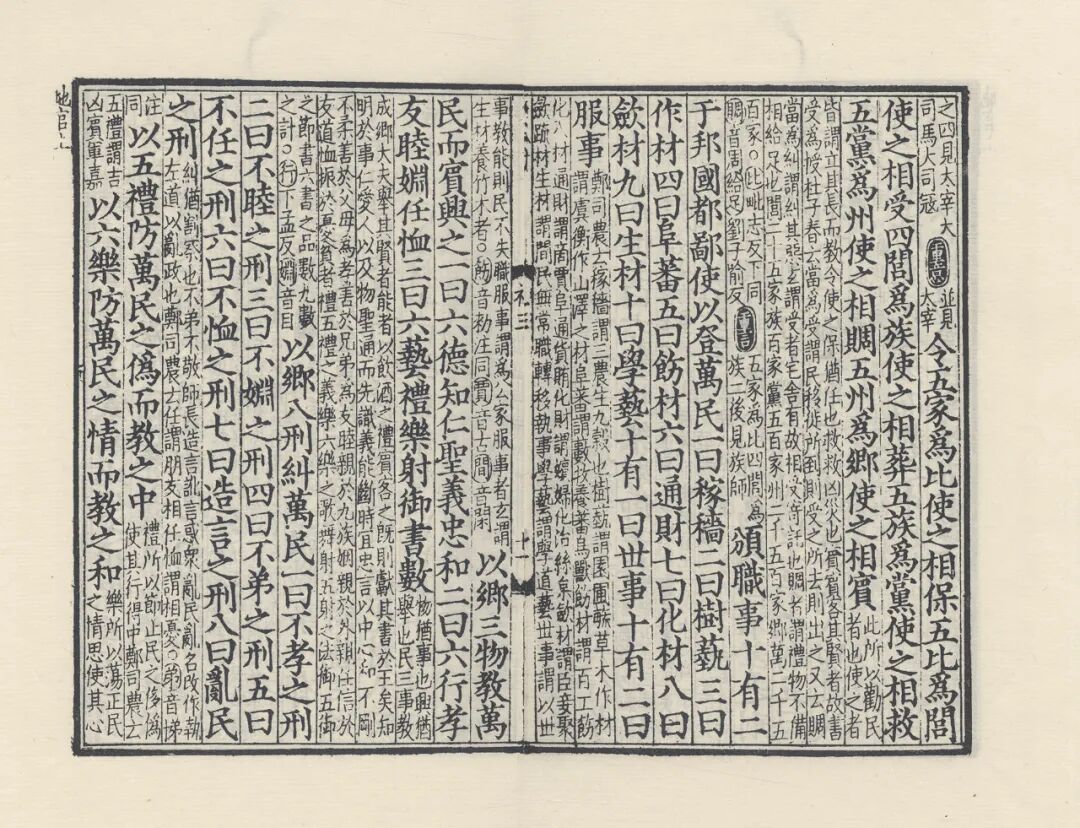 之四見太宰大
司馬大司寇
重言
並見
大宰
令五家爲比使之相保五比爲閭
使之相受四閭爲族使之相葬五族爲黨使之相救
五黨爲州使之相賙五州爲鄉使之相賓
此所以勸民
者也使之者
皆謂立其長而教令使之保猶任也救救凶災也賓賓客其賢者故書
受爲授杜子春云當爲受謂民移徙所到則受之所去則出之又云賙
當爲糾謂糾其惡玄謂受者宅舍有故相受寄託也賙者謂禮物不備
相給足也閭二十五家族百家黨五百家州二千五百家鄉萬二千五
百家○比毗志反下同
賙音周給足劉子喻反
互註
五家爲比四閭爲
族二後見族師
頒職事十有二
于邦國都鄙使以登萬民一曰稼穡二曰樹蓺三曰
作材四曰阜蕃五曰飭材六曰通財七曰化材八曰
斂材九曰生材十曰學藝十有一曰世事十有二曰
服事
鄭司農云稼穡謂三農生九穀也樹蓺謂園圃毓草木作材
謂虞衡作山澤之材阜蕃謂藪牧養蕃鳥獸飭材謂百工飭
化八材通財謂商賈阜通貨賄化財謂嬪婦化治絲枲斂材謂臣妾聚
斂疏材生材謂閒民無常職轉移執事學藝謂學道藝世事謂以世
礼三
十一
事教能則民不失職服事謂爲公家服事者玄謂
生材養竹木者○飭音勑注同賈音古閒音閑
以鄉三物教萬
民而賓興之一曰六德知仁聖義忠和二曰六行孝
友睦婣任恤三曰六藝禮樂射御書數
物猶事也興猶
舉也民三事教
成鄉大夫舉其賢者能者以飲酒之禮賓客之既則獻其書於王矣知
明於事仁愛人以及物聖通而先識義能斷時宜忠言以中心和不剛
不柔善於父母爲孝善於兄弟爲友睦親於九族婣親於外親任信於
友道恤振於憂貧者禮五禮之義樂六樂之歌舞射五射之法御五御
之節書六書之品數九數
之計○行下孟反婣音因
以鄉八刑糾萬民一曰不孝之刑
二曰不睦之刑三曰不婣之刑四曰不弟之刑五曰
不任之刑六曰不恤之刑七曰造言之刑八曰亂民
之刑
糾猶割察也不弟不敬師長造言訛言惑衆亂民亂名改作執
左道以亂政也鄭司農云任謂朋友相任恤謂相憂○弟音悌
注
同
以五禮防萬民之僞而教之中
禮所以節止民之侈僞
使其行得中鄭司農云
五禮謂吉
凶賓軍嘉
以六樂防萬民之情而教之和
樂所以蕩正民
之情思使其心
地官上